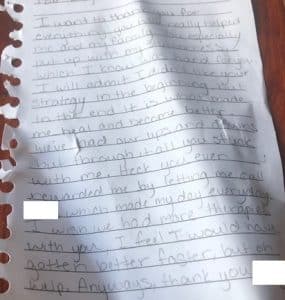 I want to thank you for
everything you've done. You helped
me and my family, especially
put up with my
which I know
I will admit I didn't like your
strategy in the beginning, but
in the end it is what made
me heal and become better.
We've had our ups and downs
but through it all you stuck
with me. Heck you even
rewarded me by letting me call
which made my day everyday.
I wish we had more therapist
with you. I feel I would have
gotten better faster, but oh
whelp. Anyways, thank you